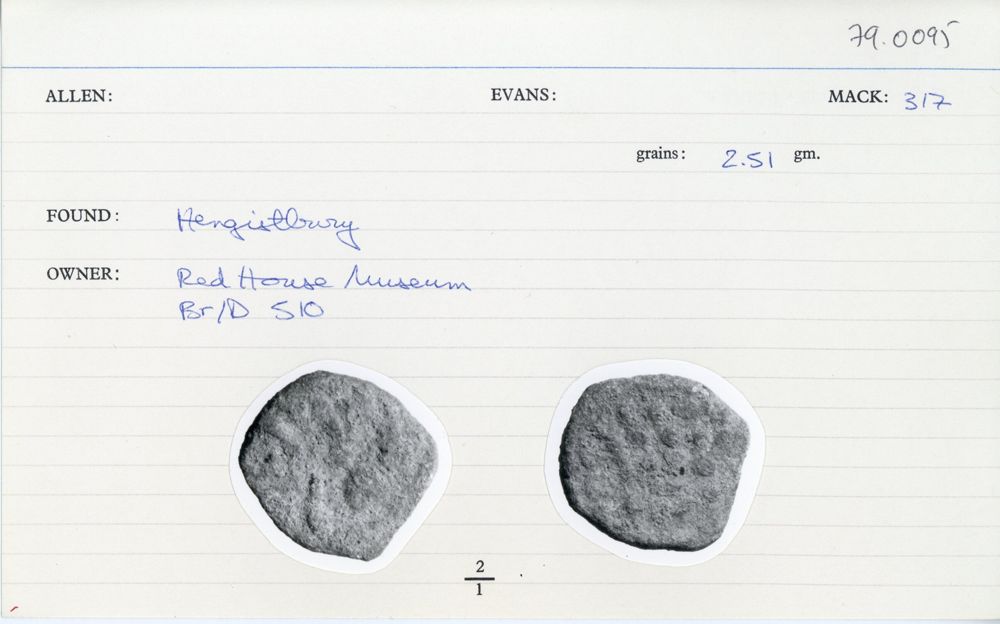 79.0095
ALLEN: EVANS: MACK: 317
grains: 2.51 gm.
FOUND: Hengistbury
OWNER: Red House Museum
Br/D 510
2
1